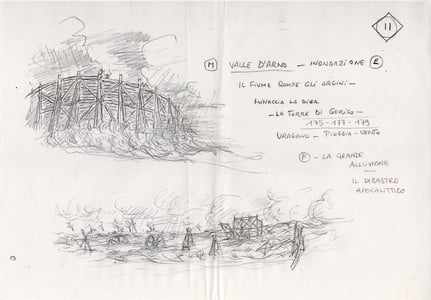 11
M VALLE D'ARNO – INONDAZIONE E
IL FIUME ROMPE GLI ARGINI –
MINACCIA LA DIGA
– LA TORRE DI GERICO –
175 – 177 – 179
URAGANO – PIOGGIA – VENTO
F – LA GRANDE
ALLUVIONE
IL DISASTRO
APOCALITTICO